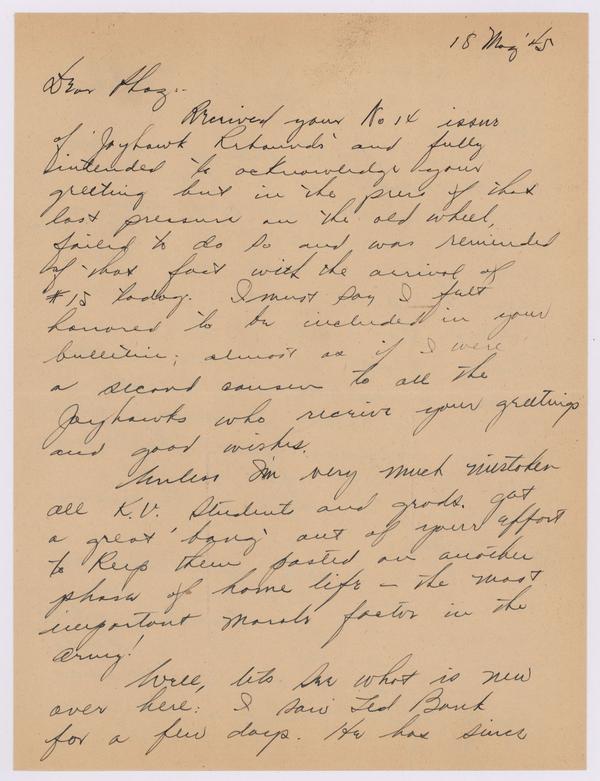 18 May '45
Dear Phog:-
Received your No 14 issue
of 'Jayhawk Rebounds' and fully
intended to acknowledge your
greeting but in the press of that
last pressure on the old wheel,
failed to do so and was reminded
of that fact with the arrival of
#15 today. I must say I felt
honored to be included in your
bulletin; almost as if I were
a second cousin to all the
Jayhawks who receive your greetings
and good wishes.
Unless I'm very much mistaken
all K.U. students and grads. get
a great 'bang' out of your effort
to keep them posted on another
phase of home life – the most
important morale factor in the
army!
Well, lets see what is new
over here: I saw Ted Bank
for a few days. He has since